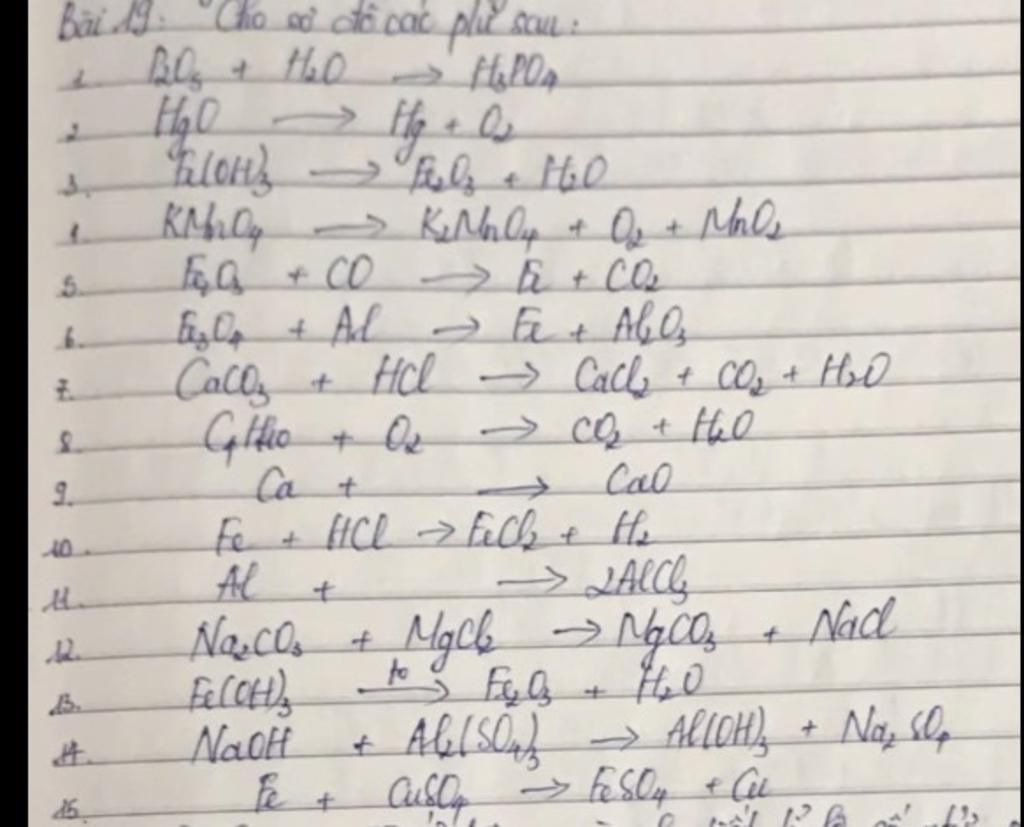 Bài 19: Cho sơ đồ các pứ sau:
1. P2O5 + H2O → H3PO4
2. HgO → Hg + O2
3. Fe(OH)3 → Fe2O3 + H2O
4. KMnO4 → K2MnO4 + O2 + MnO2
5. Fe2O3 + CO → Fe + CO2
6. Fe3O4 + Al → Fe + Al2O3
7. CaCO3 + HCl → CaCl2 + CO2 + H2O
8. C4H10 + O2 → CO2 + H2O
9. Ca + → CaO
10. Fe + HCl → FeCl2 + H2
11. Al + → 2AlCl3
12. Na2CO3 + MgCl2 → MgCO3 + NaCl
13. Fe(OH)3 to → Fe2O3 + H2O
14. NaOH + Al2(SO4)3 → Al(OH)3 + Na2SO4
15. Fe + CuSO4 → FeSO4 + Cu